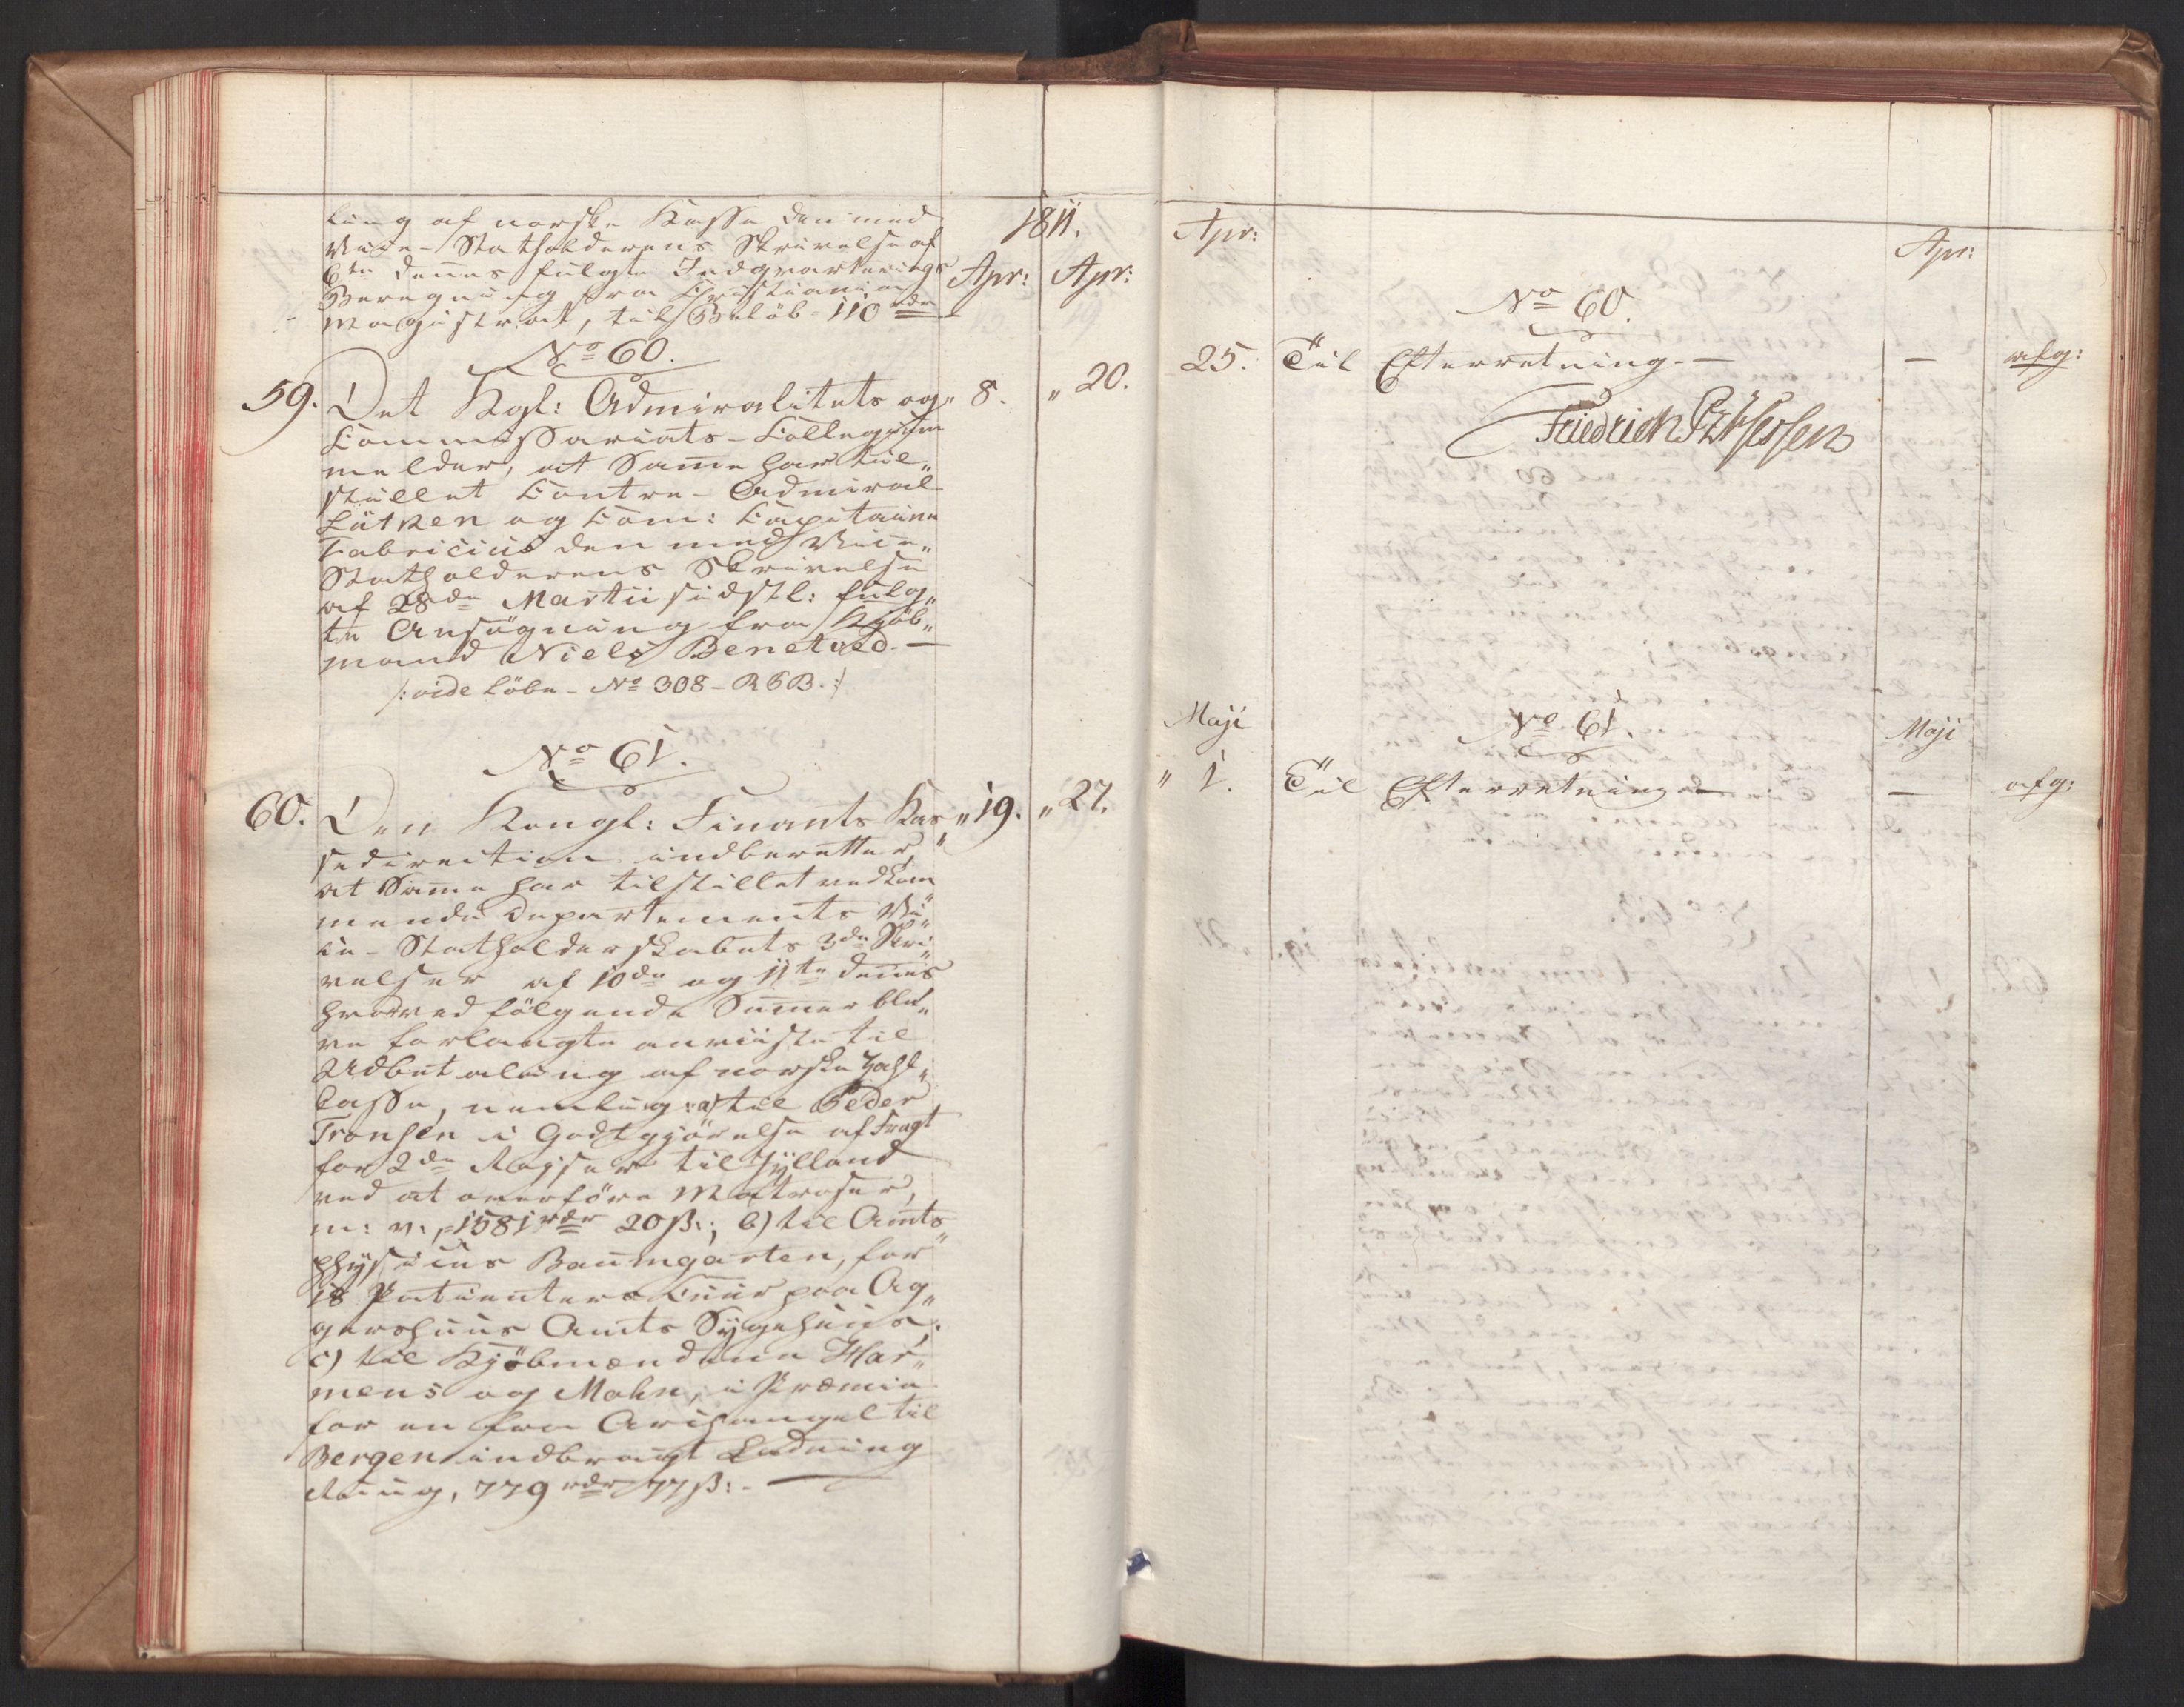 ling af norske Kasse den med
Vice-Statholderens Skrivelse af
6te dennes fulgte Indqvarterings
Beregning fra Christiania
Magistrat, til Beløb 110 rdr
1811.
Apr: Apr:
No 60.
59. Det Kgl: Admiralitets og „ 8. „ 20.
Commissariats-Collegium
melder, at Samme har til„
stillet Contre-Admiral
Lütken og Com: Capitaine
Fabricius den med Vice„
Statholderens Skrivelse
af 28de Martii sidstl: fulg„
te Ansøgning fra Kjøb„
mand Niels Benetved. —
/: vide Löbe-No 308-R6B. :/
No 61.
60. Den Kongl: Finants Kas„ „ 19. „ 27.
sedirection indberetter,
at Samme har tilstillet vedkom„
mende Departements Vi„
ce-Statholderskabets 3de Skri„
velser af 10de og 11te dennes
hvorved følgende Summer ble„
ve forlangte anviiste til
Udbetaling af norske Zahl„
Casse, nemlig: a) til Peder
Tronsen i Godtgjørelse af Fragt
for 2de Rejser til Jylland
ved at overføre Matroser,
m: v:, 1581 rdr 20 ß.; b) til Amts„
physicus Baumgarten, for
18 Patienters Cuur paa Ag„
gershuus Amts Sygehuus;
c) til Kjøbmændene Har„
mens og Mohn, i Præmie
for en fra Archangel til
Bergen indbragt Ladning
Rug, 779 rdr 77 ß: —
Apr: Apr:
No 60.
25. Til Efterretning — — afg:
Friedrich PzHessen
Maji Maji
No 61.
„ 1. Til Efterretning — — afg: